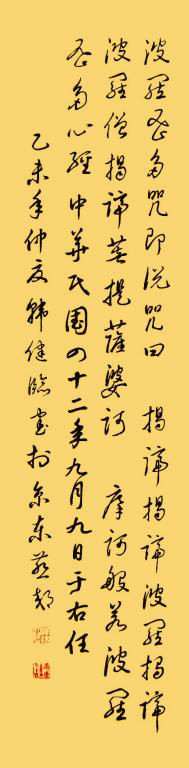 波羅蜜多咒即說咒曰 揭諦揭諦波羅揭諦
波羅僧揭諦菩提薩婆訶 摩訶般若波羅
蜜多心經 中華民國四十二年九月九日于右任
乙未年仲夏韓健臨書於京東燕郊